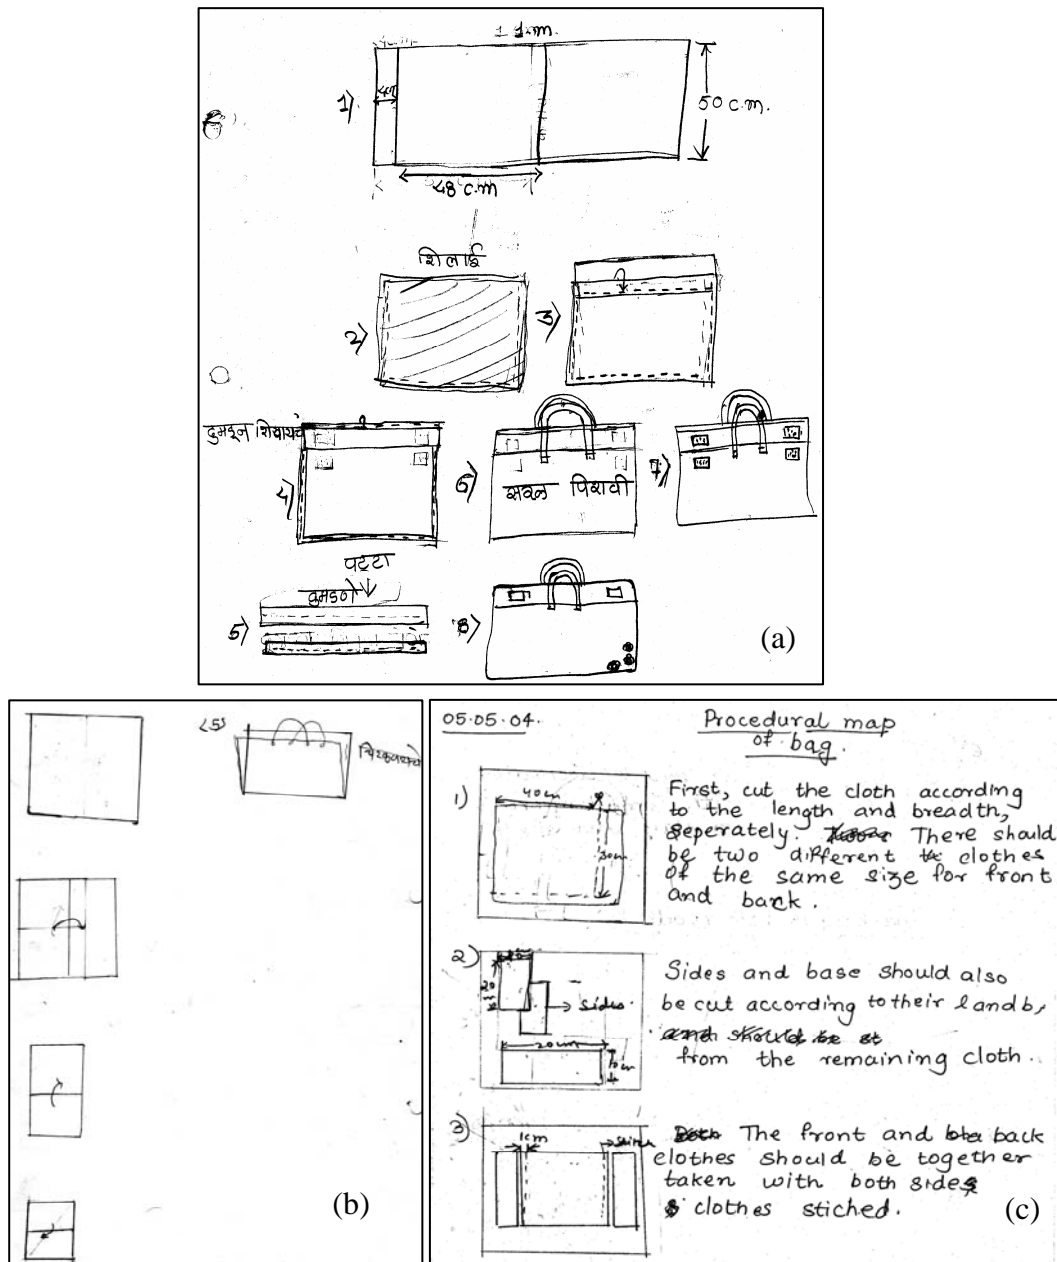 1)
4cm
50 c.m.
48 c.m
शिलाई
2)
3)
दुमडून शिवायचे
4)
6)
सरळ पिशवी
7)
पट्टा
दुमडणे
5)
8)
(a)
<5>
चिटकवायचे
(b)
05.05.04.
Procedural map
of bag.
1)
40cm
30cm
First, cut the cloth according
to the length and breadth,
Seperately. There should
be two different clothes
of the same size for front
and back.
2)
20
sides.
20cm
10cm
Sides and base should also
be cut according to their l and b,
and should be
from the remaining cloth.
3)
1cm
The front and back
clothes should be together
taken with both sides
clothes stiched.
(c)